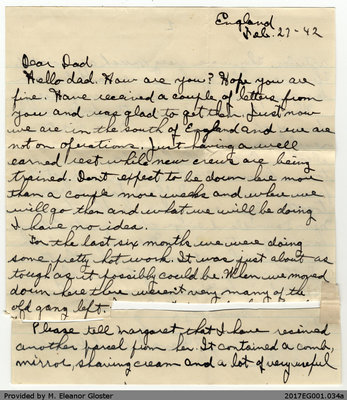 England
Feb. 27-42
Dear Dad
Hello dad. How are you? Hope you are
fine. Have received a couple of letters from
you and was glad to get them. Just now
we are in the south of England and we are
not on operations. Just having a well
earned rest while new crews are being
trained. Dont expect to be down here more
than a couple more weeks and where we
will go then and what we will be doing
I have no idea.
For the last six months we were doing
some pretty hot work. It was just about as
tough as it possibly could be. When we moved
down here there weren't very many of the
old gang left.
Please tell Margaret that I have received
another parcel from her. It contained a comb,
mirror, shaving cream and a lot of very useful
Provided by M. Eleanor Gloster
2017EG001.034a